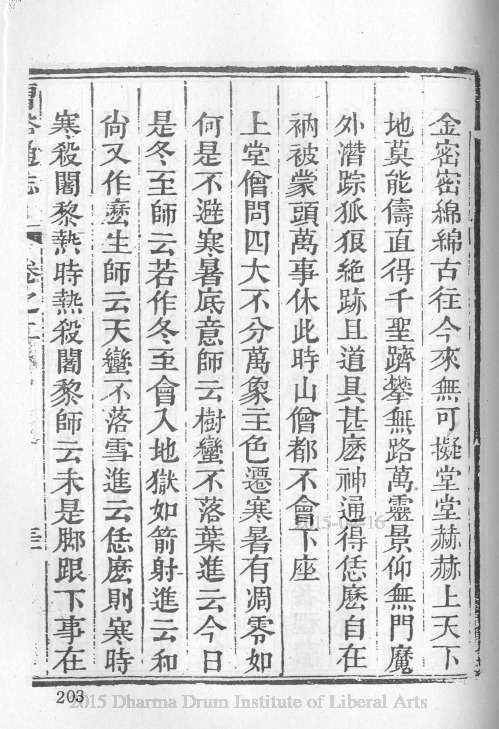 金密密綿綿古往今來無可擬堂堂赫赫上天下
地莫能儔直得千聖躋攀無路萬靈景仰無門魔
外潛踪狐狼絶跡且道具甚麽神通得恁麽自在
衲被蒙頭萬事休此時山僧都不會下座
上堂僧問四大不分萬象主色遷寒暑有凋零如
何是不避寒暑底意師云樹蠻不落葉進云今日
是冬至師云若作冬至會入地獄如箭射進云和
尙又作麽生師云天蠻不落雪進云恁麽則寒時
寒殺闍黎熱時熱殺闍黎師云未是脚跟下事在
203
2015 Dharma Drum Institute of Liberal Arts